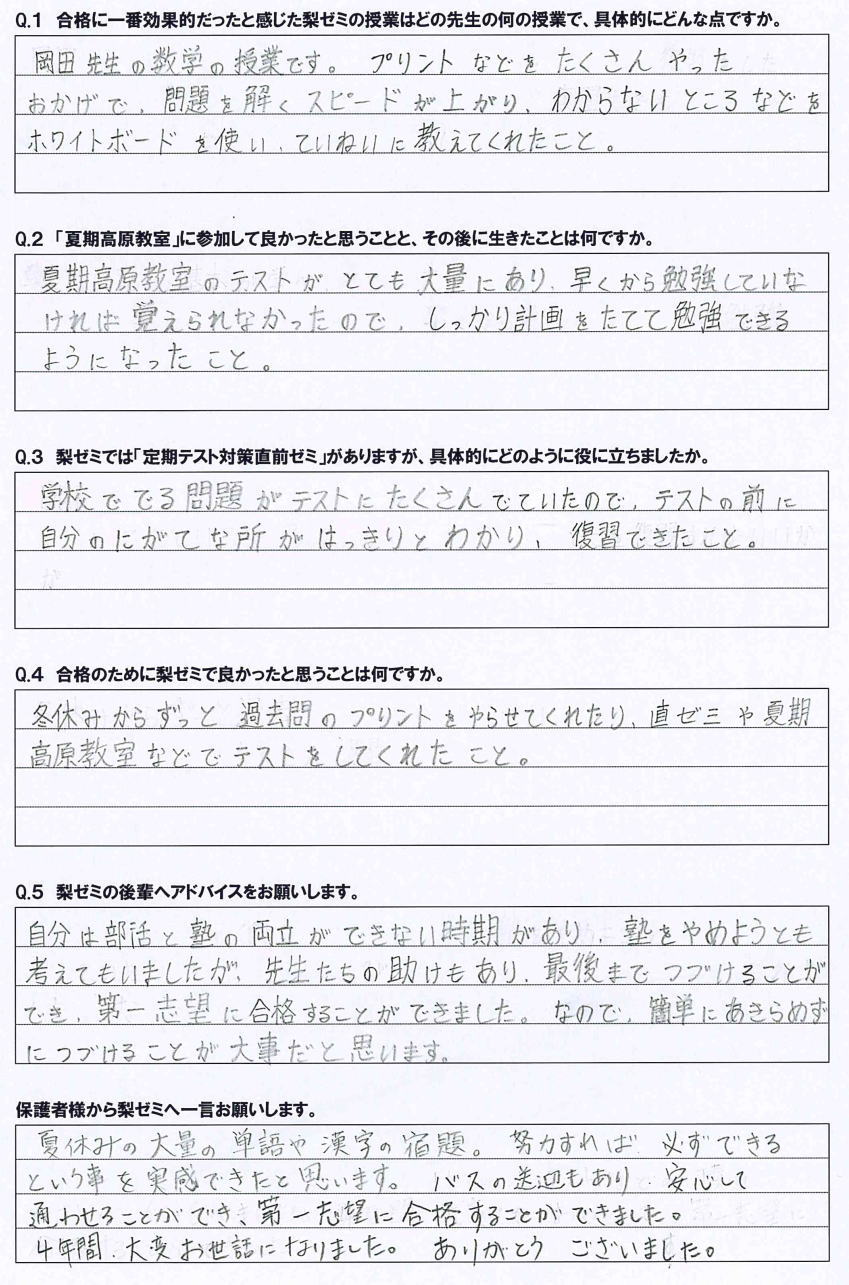 Q.1 合格に一番効果的だったと感じた梨ゼミの授業はどの先生の何の授業で、具体的にどんな点ですか。
岡田先生の数学の授業です。 プリントなどをたくさんやった
おかげで、問題を解くスピードが上がり、わからないところなどを
ホワイトボードを使い、ていねいに教えてくれたこと。
Q.2 「夏期高原教室」に参加して良かったと思うことと、その後に生きたことは何ですか。
夏期高原教室のテストがとても大量にあり、早くから勉強していな
ければ覚えられなかったので、しっかり計画をたてて勉強できる
ようになったこと。
Q.3 梨ゼミでは「定期テスト対策直前ゼミ」がありますが、具体的にどのように役に立ちましたか。
学校ででる問題がテストにたくさんでていたので、テストの前に
自分のにがてな所がはっきりとわかり、復習できたこと。
Q.4 合格のために梨ゼミで良かったと思うことは何ですか。
冬休みからずっと過去問のプリントをやらせてくれたり、直ゼミや夏期
高原教室などでテストをしてくれたこと。
Q.5 梨ゼミの後輩へアドバイスをお願いします。
自分は部活と塾の両立ができない時期があり、塾をやめようとも
考えてもいましたが、先生たちの助けもあり、最後までつづけることが
でき、第一志望に合格することができました。なので、簡単にあきらめず
につづけることが大事だと思います。
保護者様から梨ゼミへ一言お願いします。
夏休みの大量の単語や漢字の宿題。 努力すれば 必ずできる
という事を実感できたと思います。 バスの送迎もあり、安心して
通わせることができ、第一志望に合格することができました。
4年間、大変お世話になりました。 ありがとう ございました。